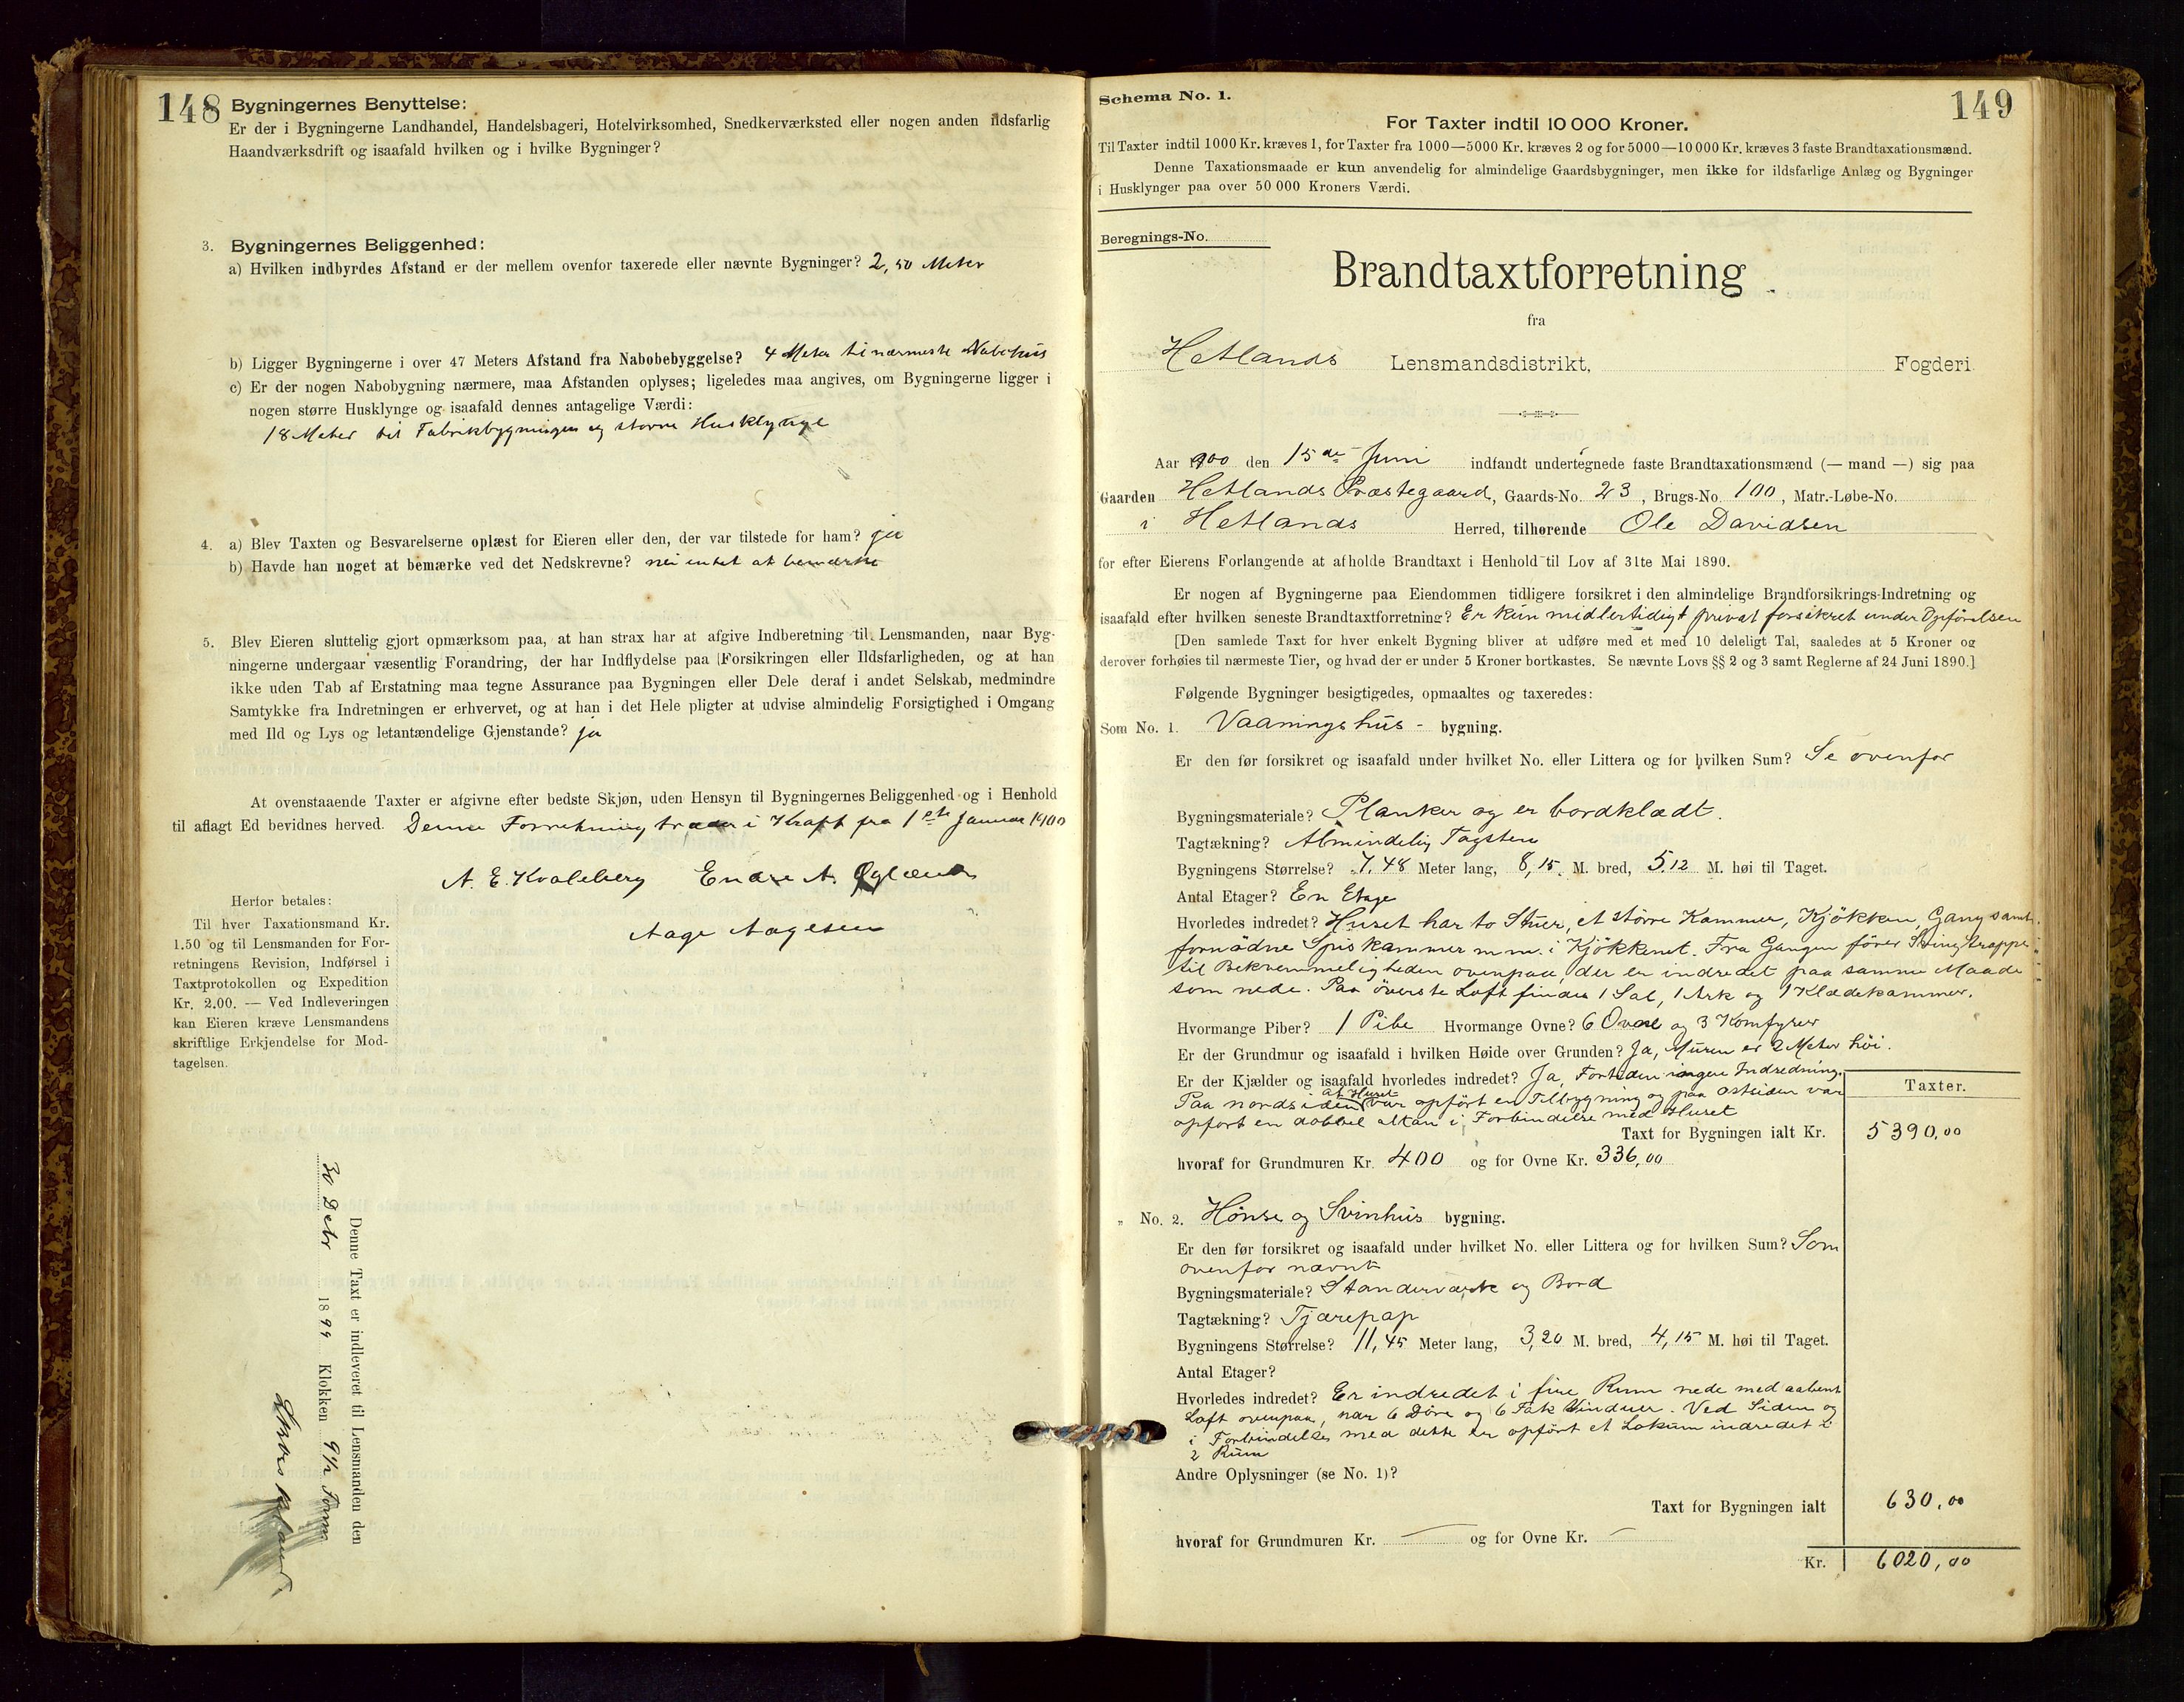 148
Bygningernes Benyttelse:
Er der i Bygningerne Landhandel, Handelsbageri, Hotelvirksomhed, Snedkerværksted eller nogen anden ildsfarlig
Haandværksdrift og isaafald hvilken og i hvilke Bygninger?
3. Bygningernes Beliggenhed:
a) Hvilken indbyrdes Afstand er der mellem ovenfor taxerede eller nævnte Bygninger? 2,50 Meter
b) Ligger Bygningerne i over 47 Meters Afstand fra Nabobebyggelse? 4 Meter til nærmeste Nabohus
c) Er der nogen Nabobygning nærmere, maa Afstanden oplyses; ligeledes maa angives, om Bygningerne ligger i
nogen større Husklynge og isaafald dennes antagelige Værdi:
18 Meter til Fabrikbygningen og større Husklynge
4. a) Blev Taxten og Besvarelserne oplæst for Eieren eller den, der var tilstede for ham? ja
b) Havde han noget at bemærke ved det Nedskrevne? nei intet at bemærke
5. Blev Eieren sluttelig gjort opmærksom paa, at han strax har at afgive Indberetning til Lensmanden, naar Byg-
ningerne undergaar væsentlig Forandring, der har Indflydelse paa Forsikringen eller Ildsfarligheden, og at han
ikke uden Tab af Erstatning maa tegne Assurance paa Bygningen eller Dele deraf i andet Selskab, medmindre
Samtykke fra Indretningen er erhvervet, og at han i det Hele pligter at udvise almindelig Forsigtighed i Omgang
med Ild og Lys og letantændelige Gjenstande? ja
At ovenstaaende Taxter er afgivne efter bedste Skjøn, uden Hensyn til Bygningernes Beliggenhed og i Henhold
til aflagt Ed bevidnes herved. Denne Forretning træder i Kraft fra 1ste Januar 1900
A. E. Kvaleberg Endre A. Øglænd
Aage Aagesen
Herfor betales:
Til hver Taxationsmand Kr.
1.50 og til Lensmanden for For-
retningens Revision, Indførsel i
Taxtprotokollen og Expedition
Kr. 2.00. — Ved Indleveringen
kan Eieren kræve Lensmandens
skriftlige Erkjendelse for Mod-
tagelsen.
Denne Taxt er indleveret til Lensmanden den
30 Debr 1899 Klokken 9½ Form
149
Schema No. 1.
For Taxter indtil 10 000 Kroner.
Til Taxter indtil 1000 Kr. kræves 1, for Taxter fra 1000—5000 Kr. kræves 2 og for 5000—10 000 Kr. kræves 3 faste Brandtaxationsmænd.
Denne Taxationsmaade er kun anvendelig for almindelige Gaardsbygninger, men ikke for ildsfarlige Anlæg og Bygninger
i Husklynger paa over 50 000 Kroners Værdi.
Beregnings-No.
Brandtaxtforretning
fra
Hetlands Lensmandsdistrikt, Fogderi
Aar 1900 den 15de Juni indfandt undertegnede faste Brandtaxationsmænd (— mand —) sig paa
Gaarden Hetlands Præstegaard, Gaards-No. 23, Brugs-No. 100, Matr.-Løbe-No.
i Hetlands Herred, tilhørende Ole Davidsen
for efter Eierens Forlangende at afholde Brandtaxt i Henhold til Lov af 31te Mai 1890.
Er nogen af Bygningerne paa Eiendommen tidligere forsikret i den almindelige Brandforsikrings-Indretning og
isaafald efter hvilken seneste Brandtaxtforretning? Er kun midlertidigt privat forsikret under Opførelsen
[Den samlede Taxt for hver enkelt Bygning bliver at udføre med et med 10 deleligt Tal, saaledes at 5 Kroner og
derover forhøies til nærmeste Tier, og hvad der er under 5 Kroner bortkastes. Se nævnte Lovs §§ 2 og 3 samt Reglerne af 24 Juni 1890.]
Følgende Bygninger besigtigedes, opmaaltes og taxeredes:
Som No. 1. Vaaningshus- bygning.
Er den før forsikret og isaafald under hvilket No. eller Littera og for hvilken Sum? Se ovenfor
Bygningsmateriale? Planker og er bordklædt.
Tagtækning? Almindelig Tagsten
Bygningens Størrelse? 7,48 Meter lang, 8,15 M. bred, 5,12 M. høi til Taget.
Antal Etager? En Etage
Hvorledes indredet? Huset har to Stuer, et større Kammer, Kjøkken, Gang samt
fornødne Spiskammer m.m. i Kjøkkenet. Fra Gangen fører Svingtrappe
til Bekvemmeligheden ovenpaa, der er indredet paa samme Maade
som nede. Paa øverste Loft findes 1 Sal, 1 Ark og 1 Klædekammer.
Hvormange Piber? 1 Pibe Hvormange Ovne? 6 Ovne og 3 Komfyrer
Er der Grundmur og isaafald i hvilken Høide over Grunden? Ja, Muren er 2 Meter høi.
Er der Kjælder og isaafald hvorledes indredet? Ja, Fortiden ingen Indredning.
Paa nordsiden af Huset var opført en Tilbygning og paa ostsiden var
opført en dobbel altan i Forbindelse med Huset
Taxter.
Taxt for Bygningen ialt Kr. 5390,00
hvoraf for Grundmuren Kr. 400 og for Ovne Kr. 336,00
„ No. 2. Hønse og Svinhus bygning.
Er den før forsikret og isaafald under hvilket No. eller Littera og for hvilken Sum? Som
ovenfor nævnt
Bygningsmateriale? Standerværk og Bord
Tagtækning? Tjærepap
Bygningens Størrelse? 11,45 Meter lang, 3,20 M. bred, 4,15 M. høi til Taget.
Antal Etager?
Hvorledes indredet? Er indredet i fire Rum nede med aabent
Loft ovenpaa, har 6 Døre og 6 Fak Vinduer. Ved Siden og
i Forbindelse med dette er opført et Lokum indredet i
2 Rum
Andre Oplysninger (se No. 1)?
Taxt for Bygningen ialt 630,00
hvoraf for Grundmuren Kr. — og for Ovne Kr. —
Kr. 6020,00